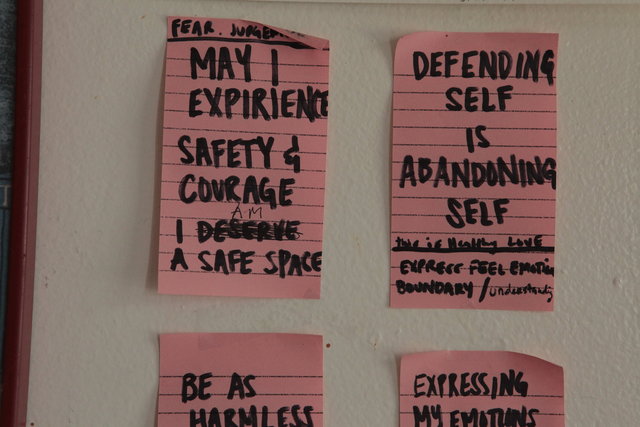 FEAR. JURGEMENT
MAY I
EXPIRIENCE
SAFETY &
COURAGE
AM
I DESERVE
A SAFE SPACE
DEFENDING
SELF
IS
ABANDONING
SELF
this is Healthy LOVE
EXPRESS FEEL EMOTION
BOUNDARY / understanding
BE AS
HARMLESS
EXPRESSING
MY EMOTIONS